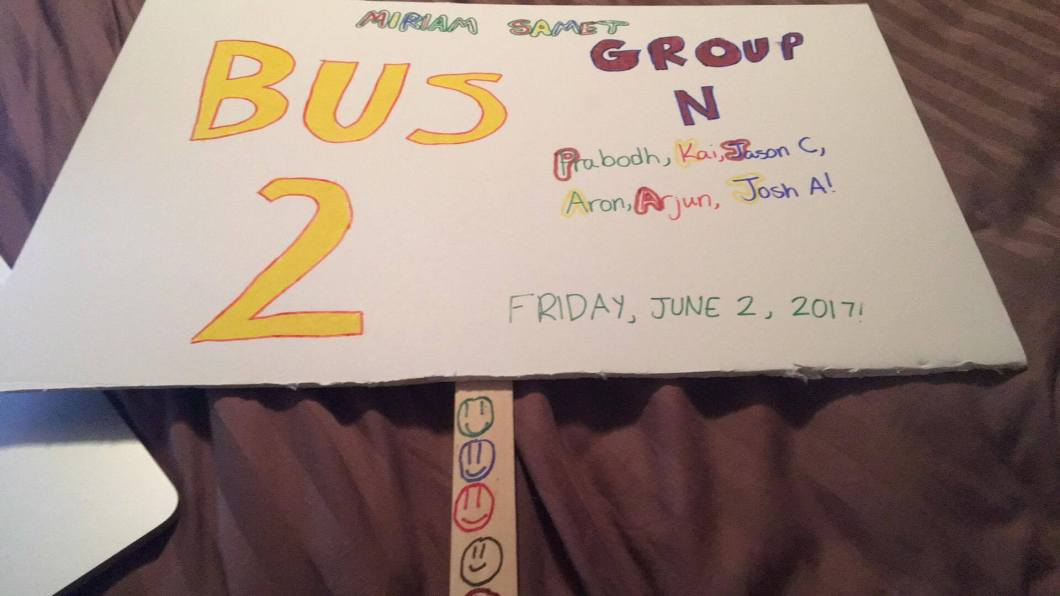 MIRIAM SAMET
BUS
2
GROUP
N
Prabodh, Kai, Jason C,
Aron, Arjun, Josh A!
FRIDAY, JUNE 2, 2017!